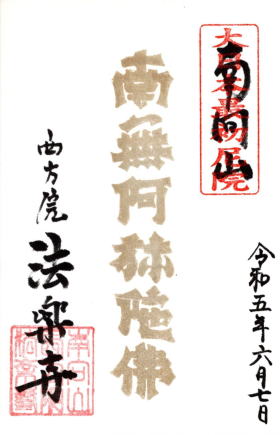 南向山
令和五年六月七日
南無阿弥陀佛
西方院
法樂寺